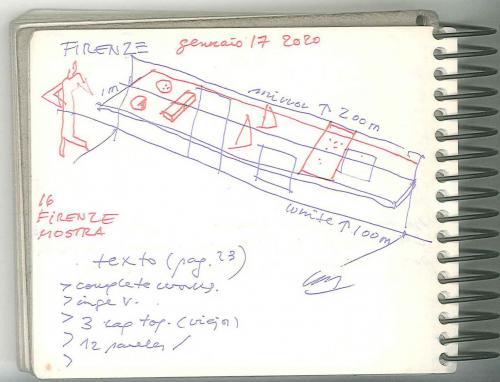 FIRENZE gennaio 17 2020
1m
mirror ↑ 200m
white ↑ 100m
16
FIRENZE
MOSTRA
texto (pag. 23)
> complete works.
> inge v.
> 3 (viejo)
> 12 paneles /
>